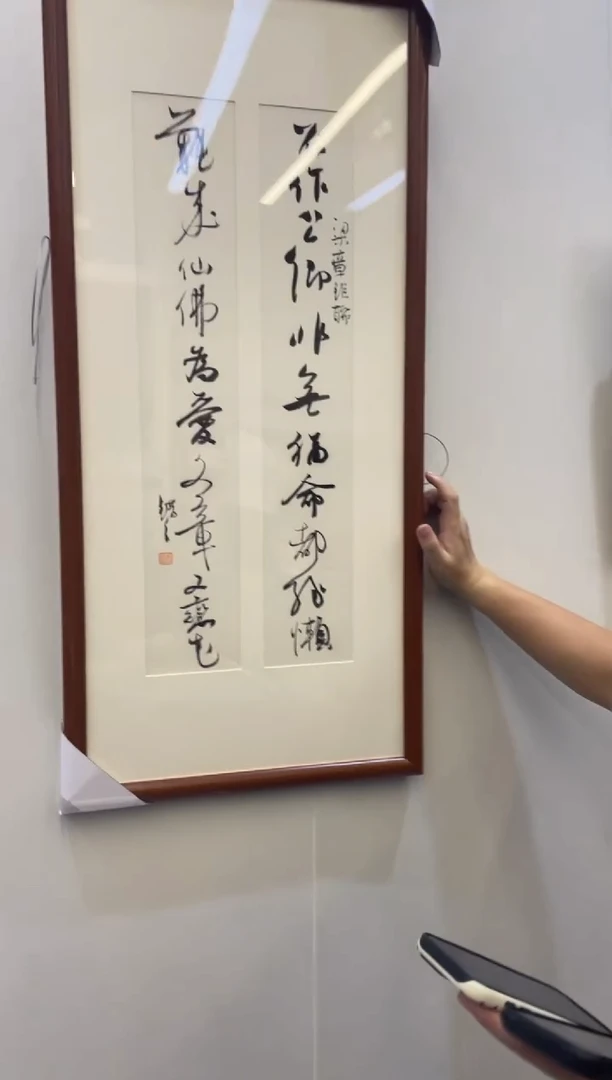 不作公卿非無福命都緣懶
梁章鉅聯
難成仙佛為愛文章又戀花